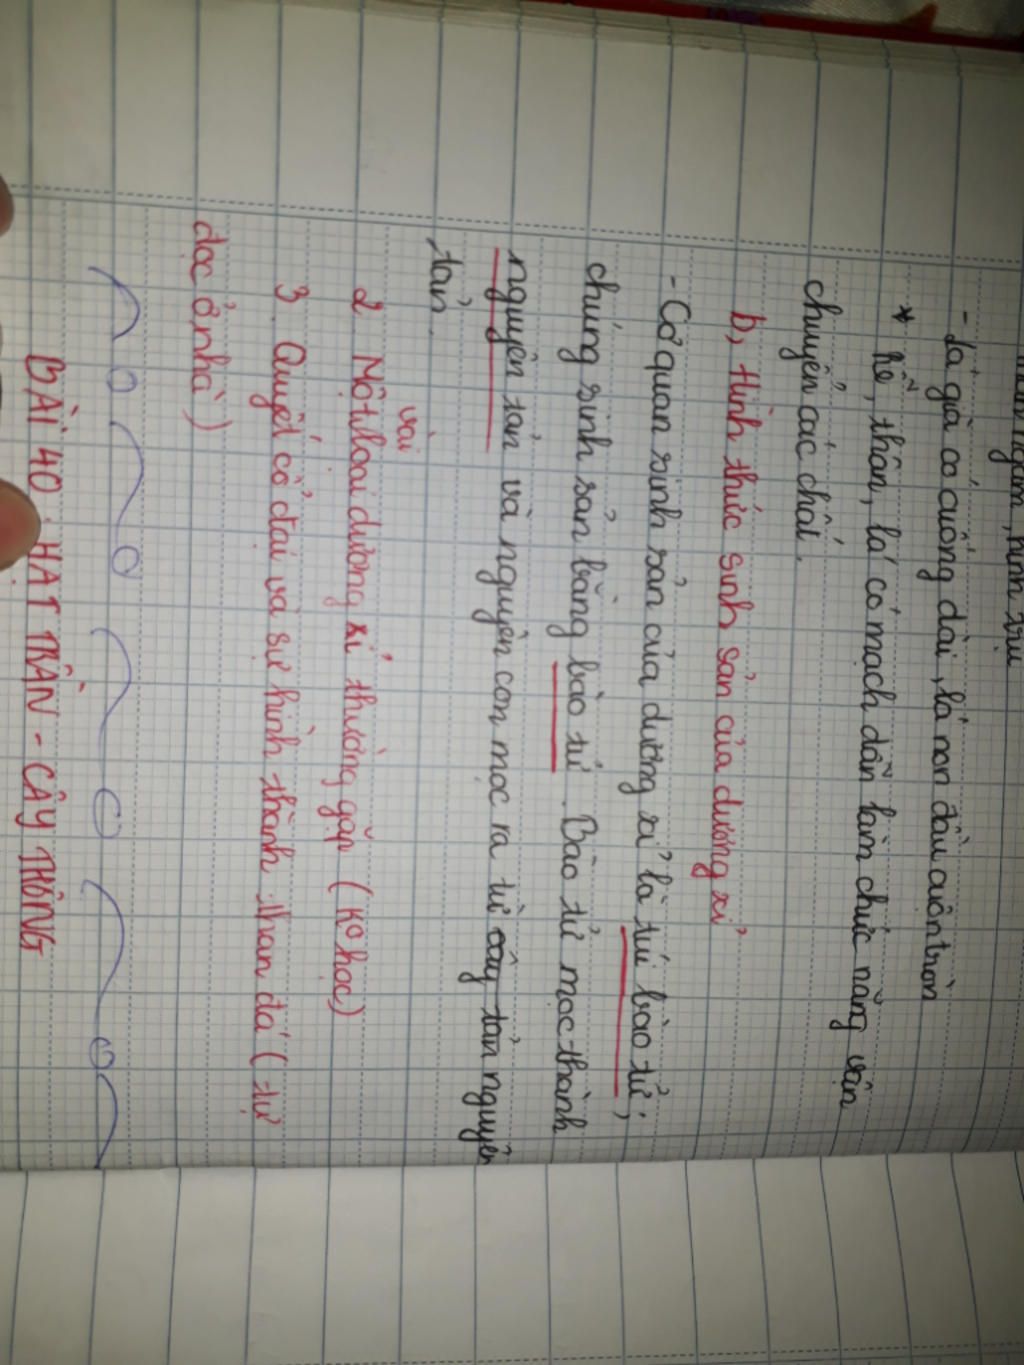 - Lá già có cuống dài, lá non đầu cuộn tròn
* Rễ, thân, lá có mạch dẫn làm chức năng vận
chuyển các chất.
b, Hình thức sinh sản của dương xỉ
- Cơ quan sinh sản của dương xỉ là túi bào tử,
chúng sinh sản bằng bào tử. Bào tử mọc thành
nguyên tản và nguyên con mọc ra từ cây tản nguyên
tản.
vài
2 Một loài dương xỉ thường gặp (Ko học)
3. Quyết cổ đại và sự hình thành than đá (tự
đọc ở nhà)
BÀI 40. HẠT TRẦN - CÂY THÔNG